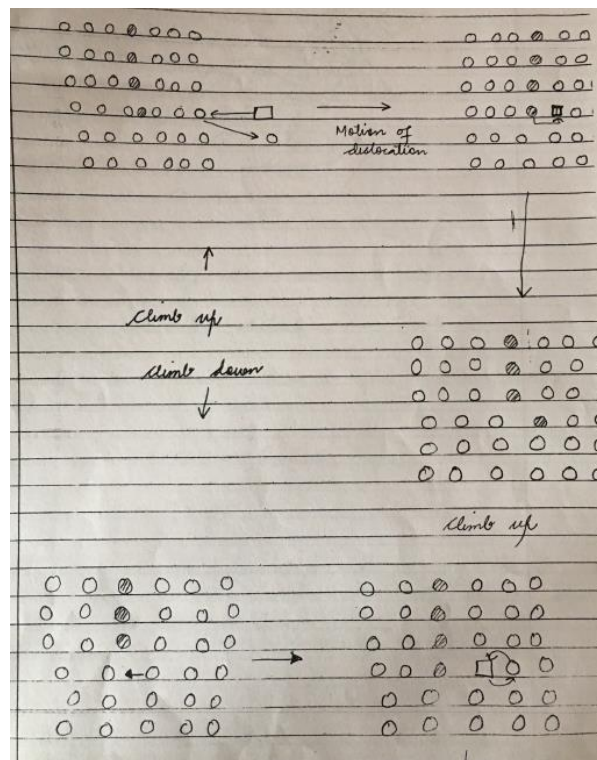 Motion of
dislocation
Climb up
climb down
climb up